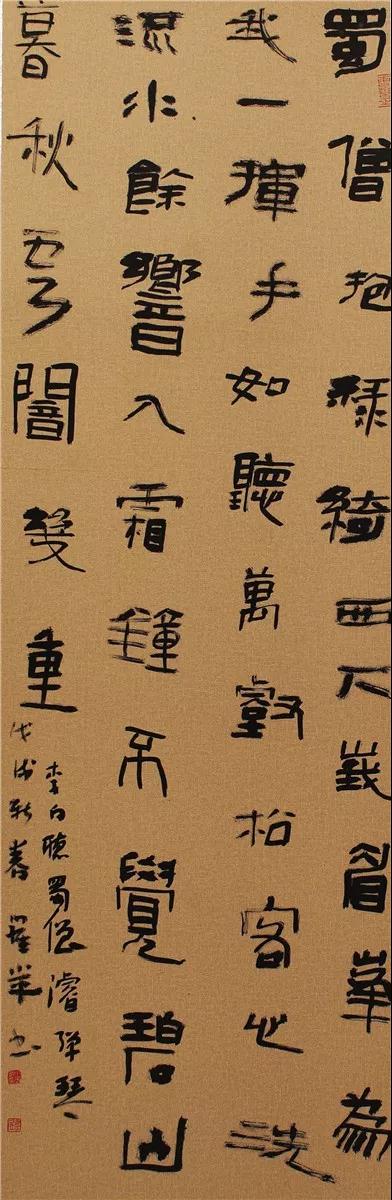 蜀僧抱綠綺西下峩眉峯為
我一揮手如聽萬壑松客心洗
流水餘響入霜鐘不覺碧山
暮秋云闇幾重
李白聽蜀僧濬彈琴
戊戌新春